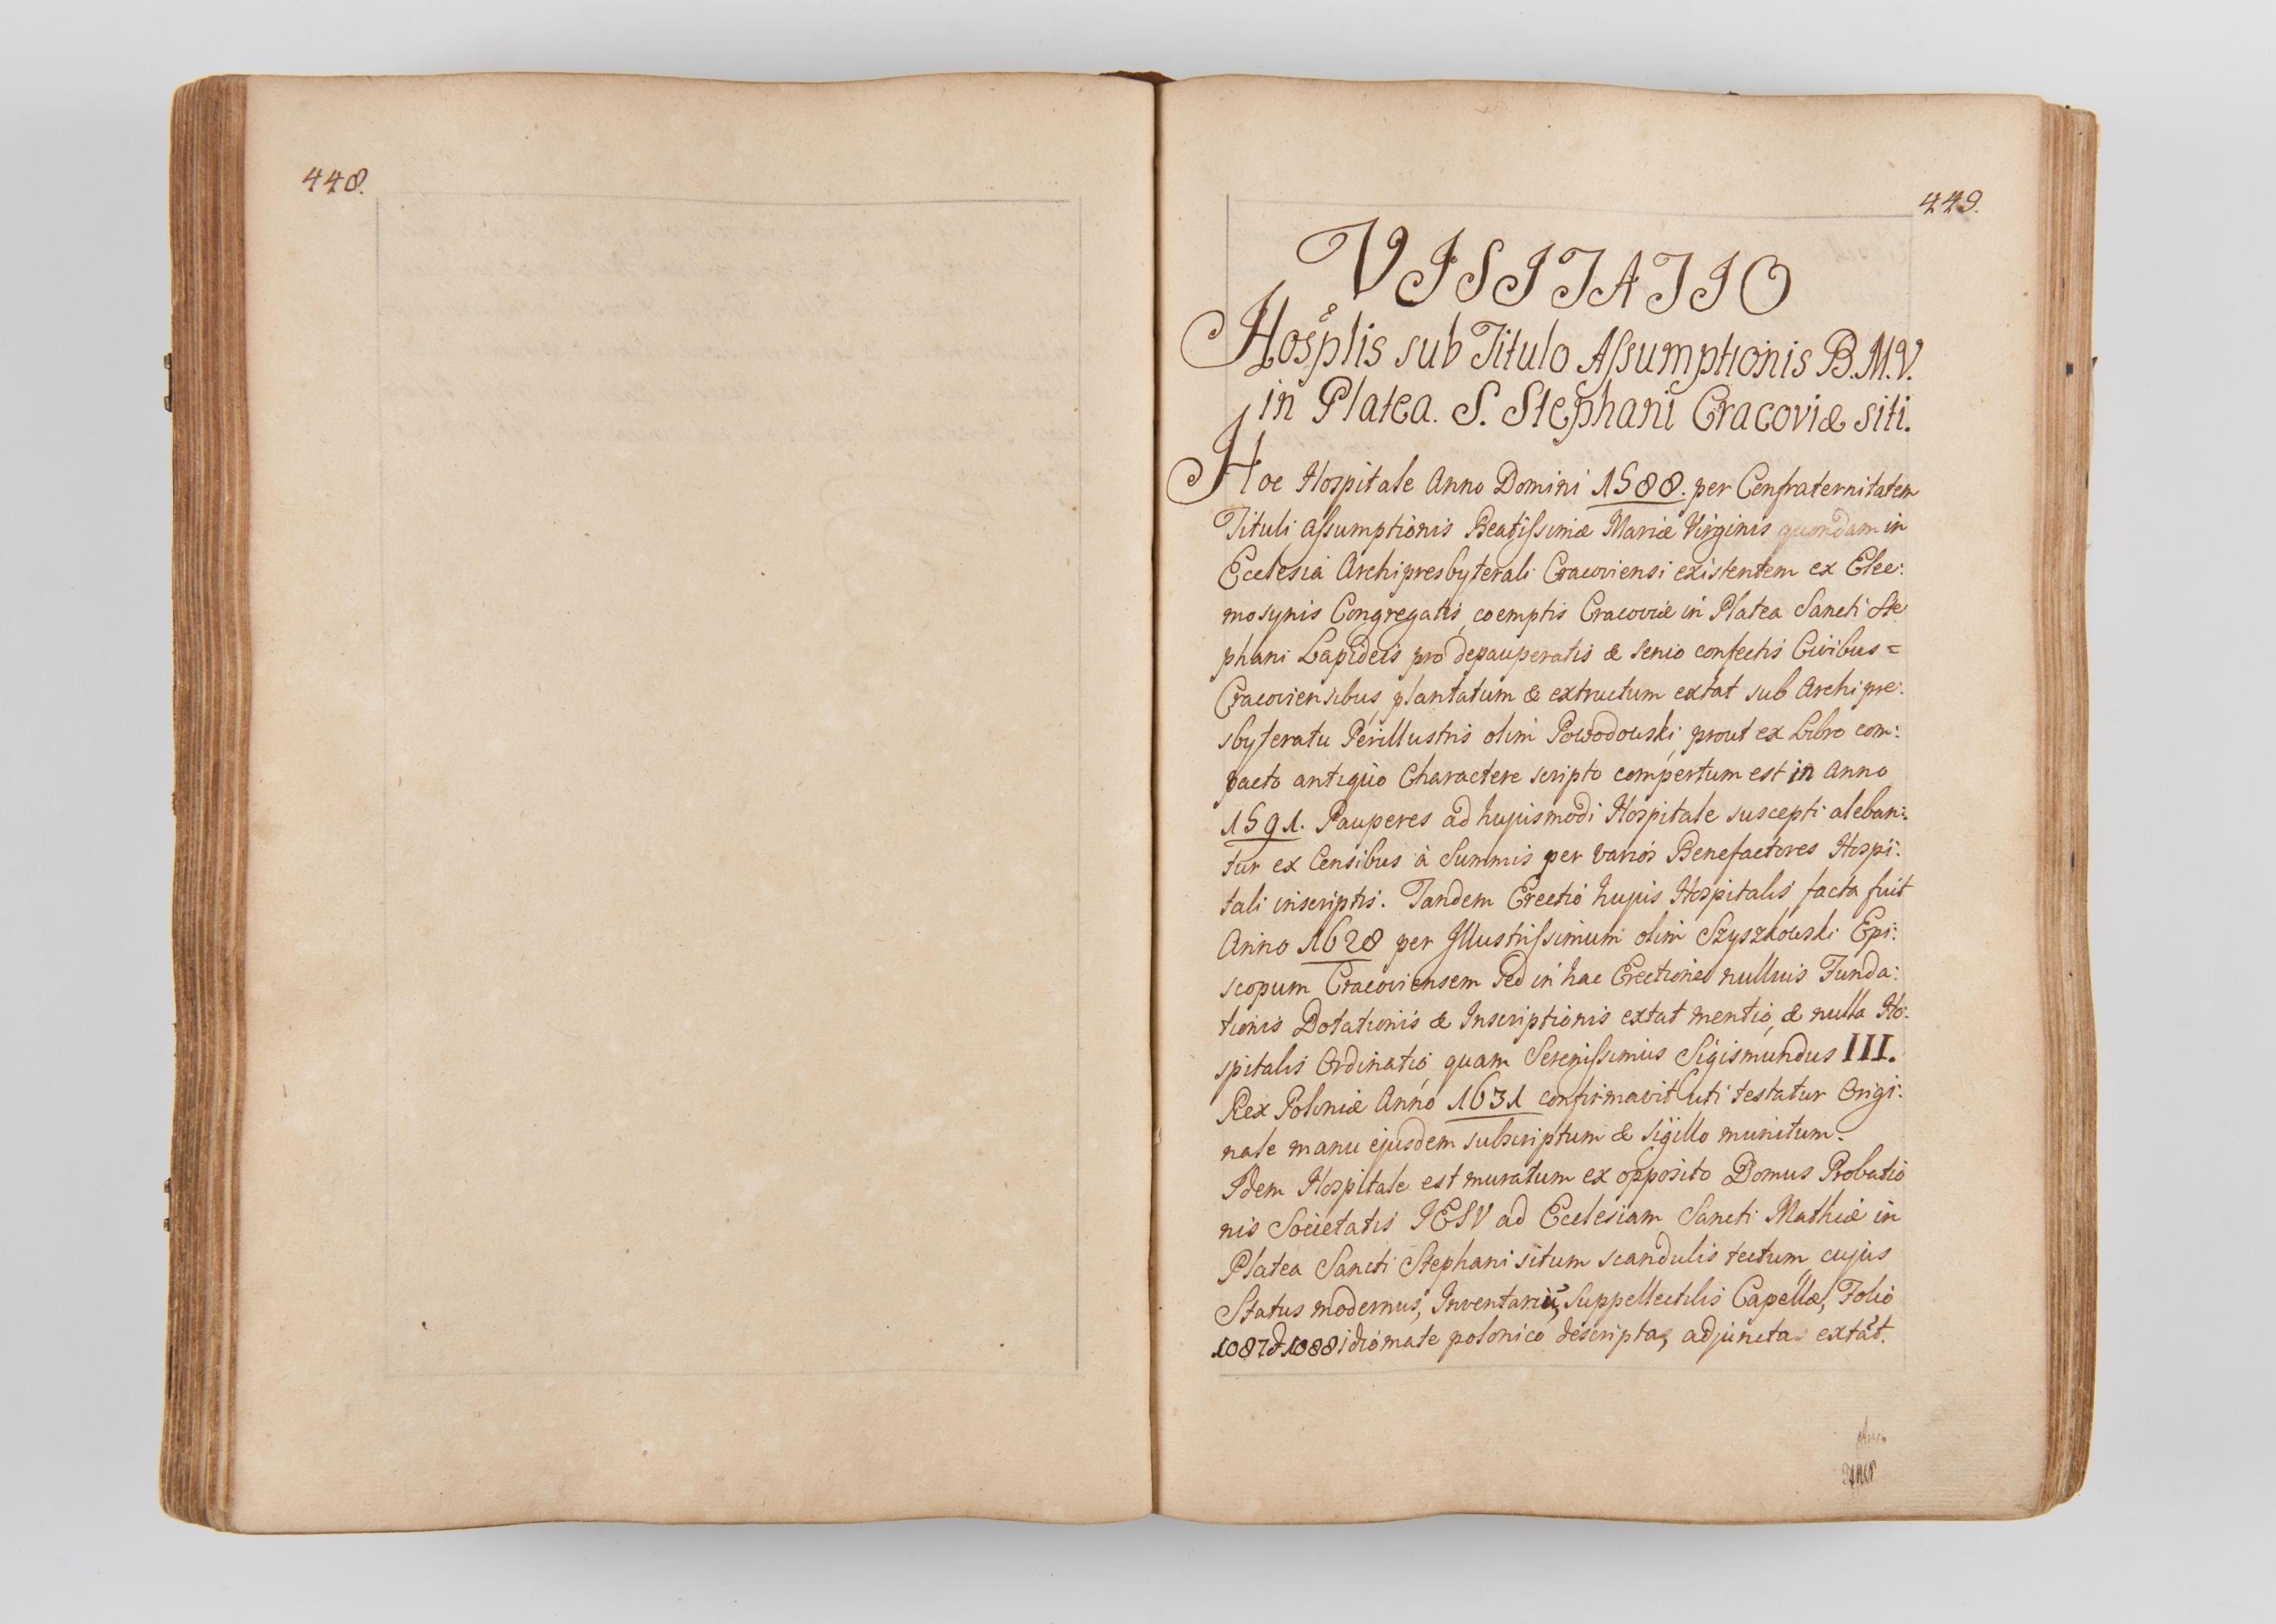 448.
449.
VISITATIO
Hosplis sub Titulo Aſsumptionis B.M.V.
in Platea. S. Stephani Cracoviæ siti.
Hoc Hospitale Anno Domini 1588. per Confraternitatem
Tituli Aſsumptionis Beatiſsimæ Mariæ Virginis quondam in
Ecclesia Archipresbyterali Cracoviensi existentem ex Elee:
mosynis Congregatis, coemptis Cracoviæ in Platea Sancti Ste
phani Lapideis pro depauperatis & senio confectis Civibus=
Cracoviensibus, plantatum & extructum extat sub Archipre:
sbyteratu Perillustris olim Powodowski, prout ex Libro com:
pacto antiquo Charactere scripto compertum est in Anno
1591. Pauperes ad hujusmodi Hospitale suscepti aleban:
tur ex Censibus à Summis per varios Benefactores Hospi:
tali inscriptis. Tandem Erectio hujus Hospitalis facta fuit
Anno 1628 per Jllustriſsimum olim Szyszkowski Epi:
scopum Cracoviensem sed in hac Erectione nullius Funda:
tionis Dotationis & Inscriptionis extat mentio, & nulla Ho:
spitalis Ordinatio, quam Sereniſsimus Sigismundus III.
Rex Poloniæ Anno 1631 confirmavit uti testatur Origi:
nale manu ejusdem subscriptum & sigillo munitum.
Idem Hospitale est muratum ex opposito Domus Probatio
nis Societatis IESV ad Ecclesiam Sancti Mathiæ in
Platea Sancti Stephani situm scandulis tectum, cujus
Status modernus, Inventariū, Suppellectilis Capellæ, Folio
1087 & 1088 idiomate polonico descripta, adjuncta extāt.